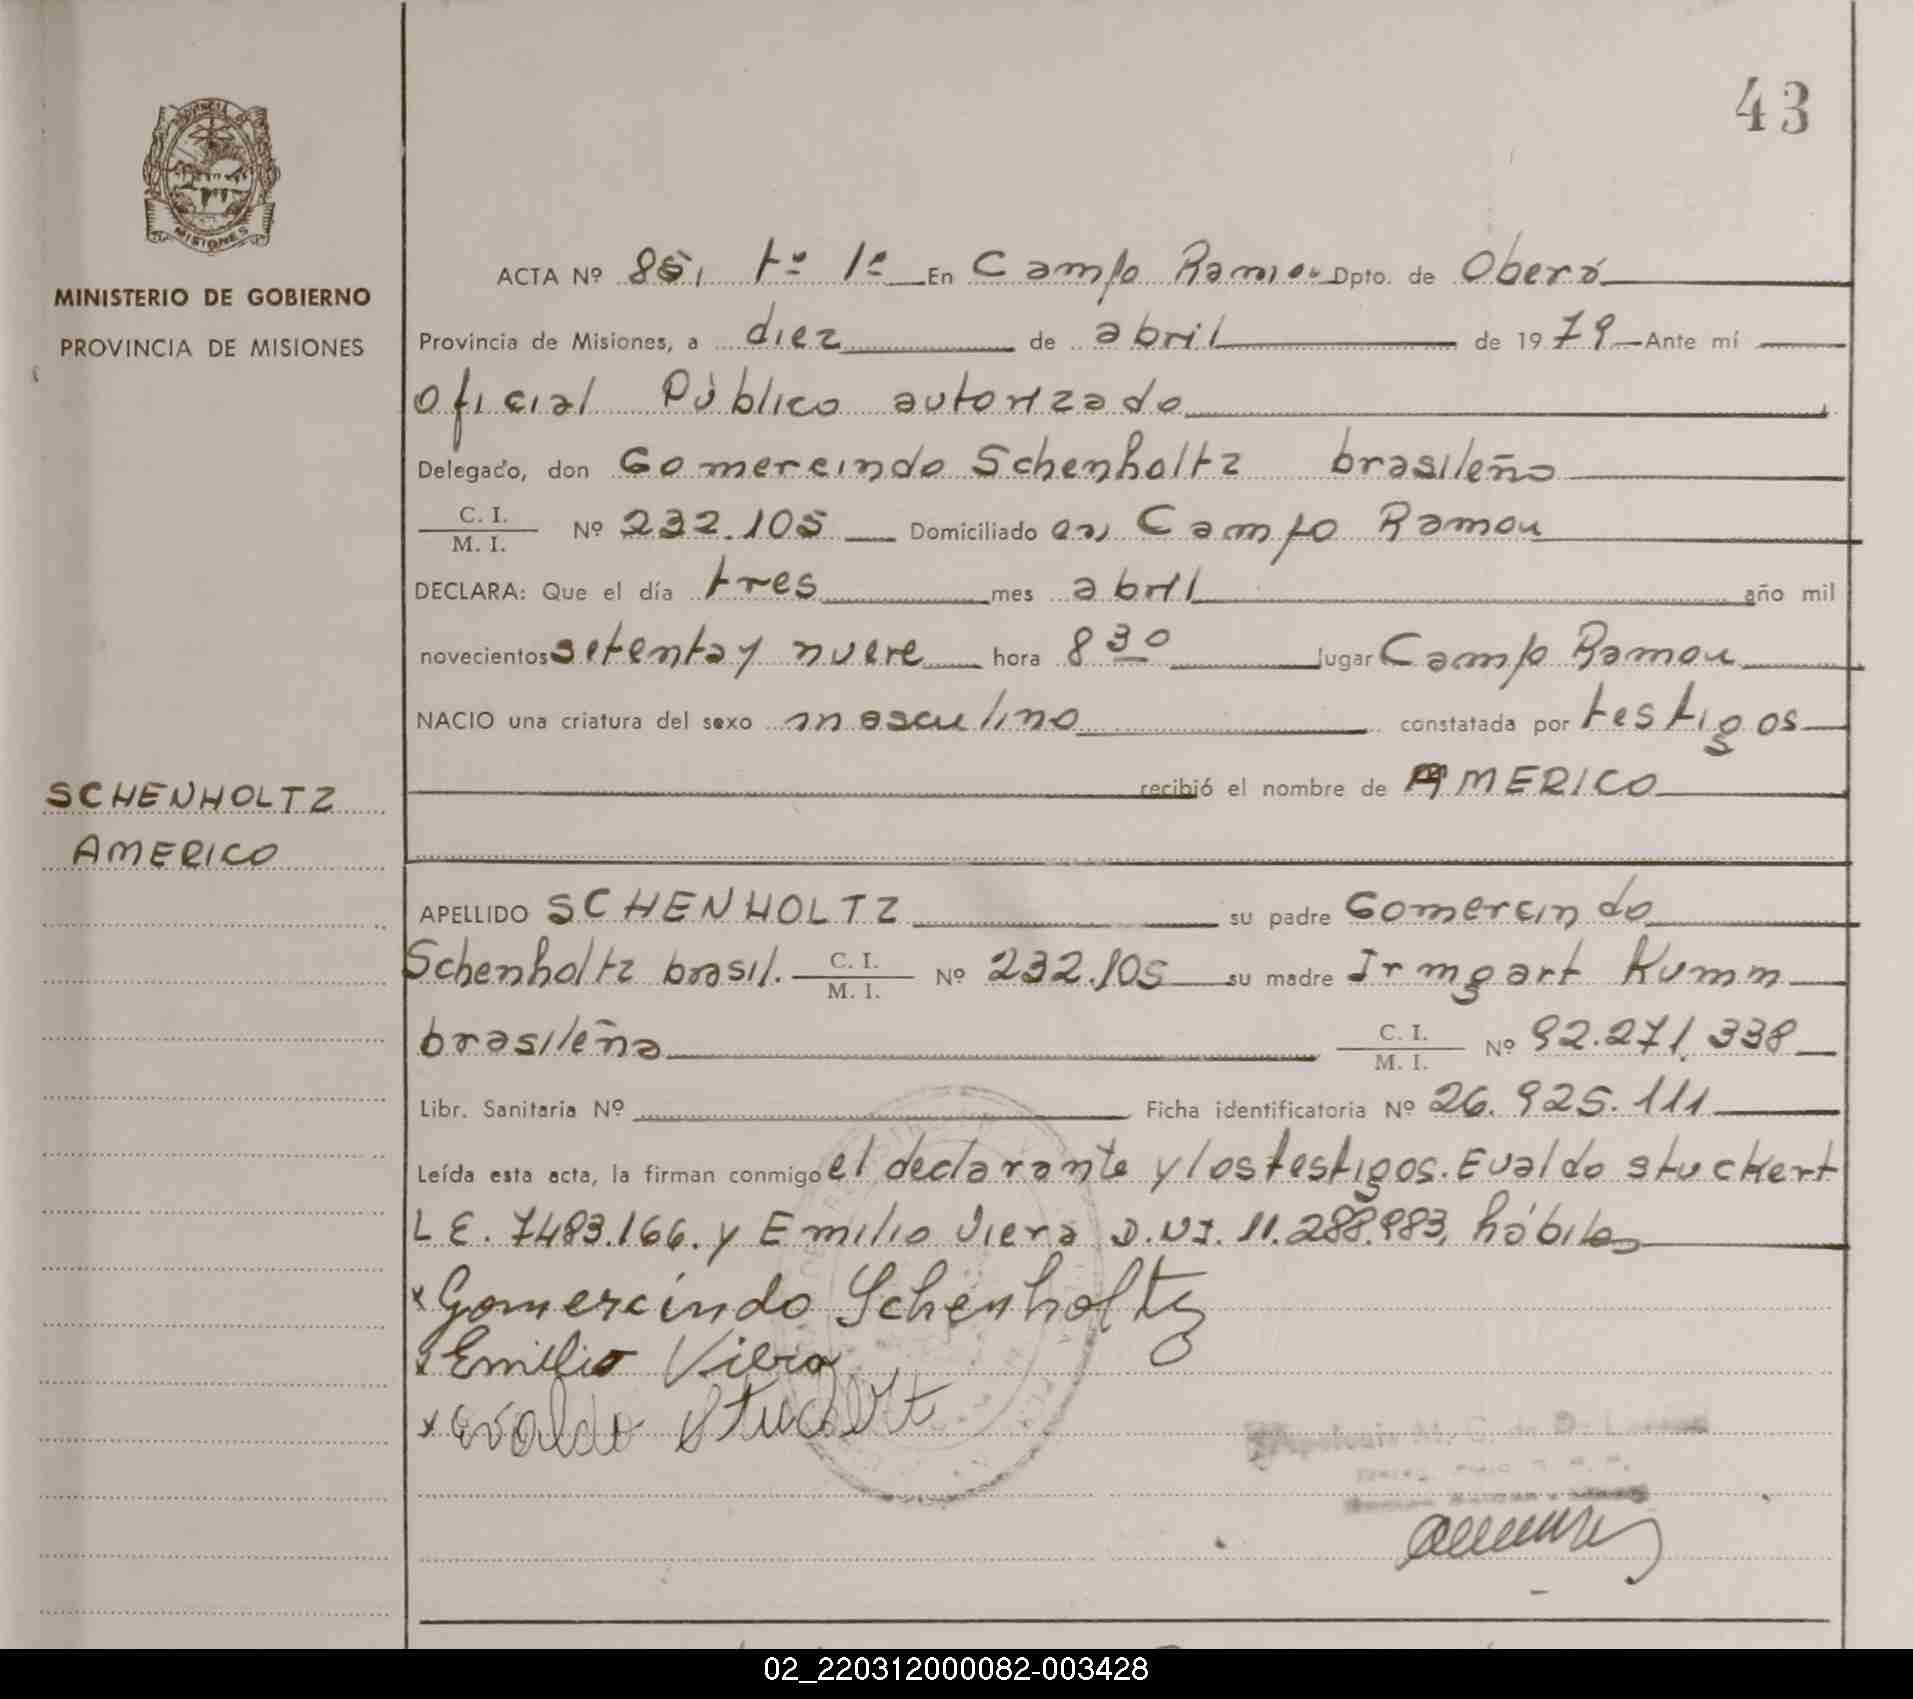 43
MISIONES
MINISTERIO DE GOBIERNO
PROVINCIA DE MISIONES
ACTA Nº 85, tº 1º En Campo Ramon Dpto. de Oberá
Provincia de Misiones, a diez de abril de 1979 Ante mí
Oficial Público autorizado
Delegado, don Gomercindo Schenholtz brasileño
C. I.
M. I. Nº 232.105 Domiciliado en Campo Ramon
DECLARA: Que el día tres mes abril año mil
novecientos setenta y nueve hora 8 30 lugar Campo Ramon
NACIO una criatura del sexo masculino constatada por testigos
recibió el nombre de AMERICO
SCHENHOLTZ
AMERICO
APELLIDO SCHENHOLTZ su padre Gomercindo
Schenholtz brasil. C. I. M. I. Nº 232.105 su madre Irmgart Kumm
brasileña C. I. M. I. Nº 92.271.338
Libr. Sanitaria Nº Ficha identificatoria Nº 26.925.111
Leída esta acta, la firman conmigo el declarante y los testigos. Evaldo stuckert
L E. 7483.166. y Emilio Viera D.NI. 11.288.983, hábiles
x Gomercindo Schenholtz
x Emilio Viera
x Evaldo Stuckert
02_220312000082-003428